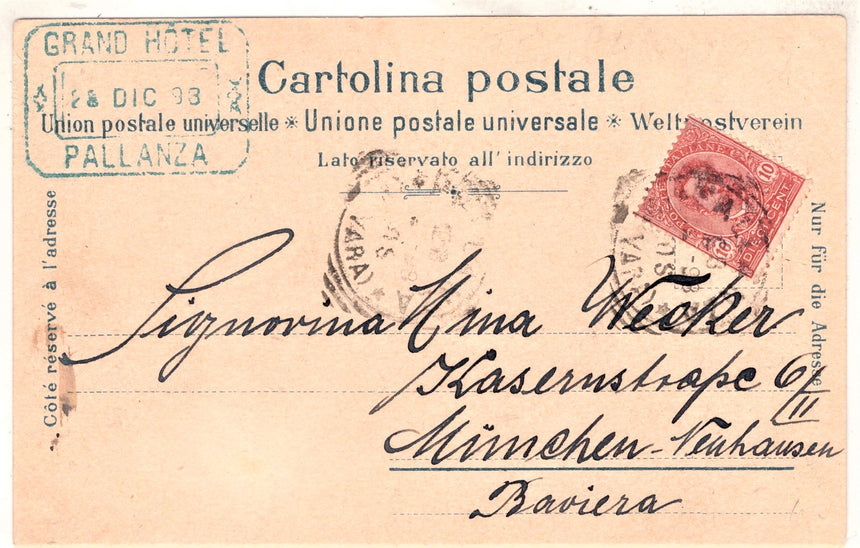 GRAND HÔTEL
28 DIC 98
PALLANZA
Cartolina postale
Union postale universelle * Unione postale universale * Weltpostverein
Lato riservato all' indirizzo
Côté réservé à l'adresse
Nur für die Adresse
10
10
Signorina Mina Wecker
Kasernstraße 6/II
München-Neuhausen
Baviera